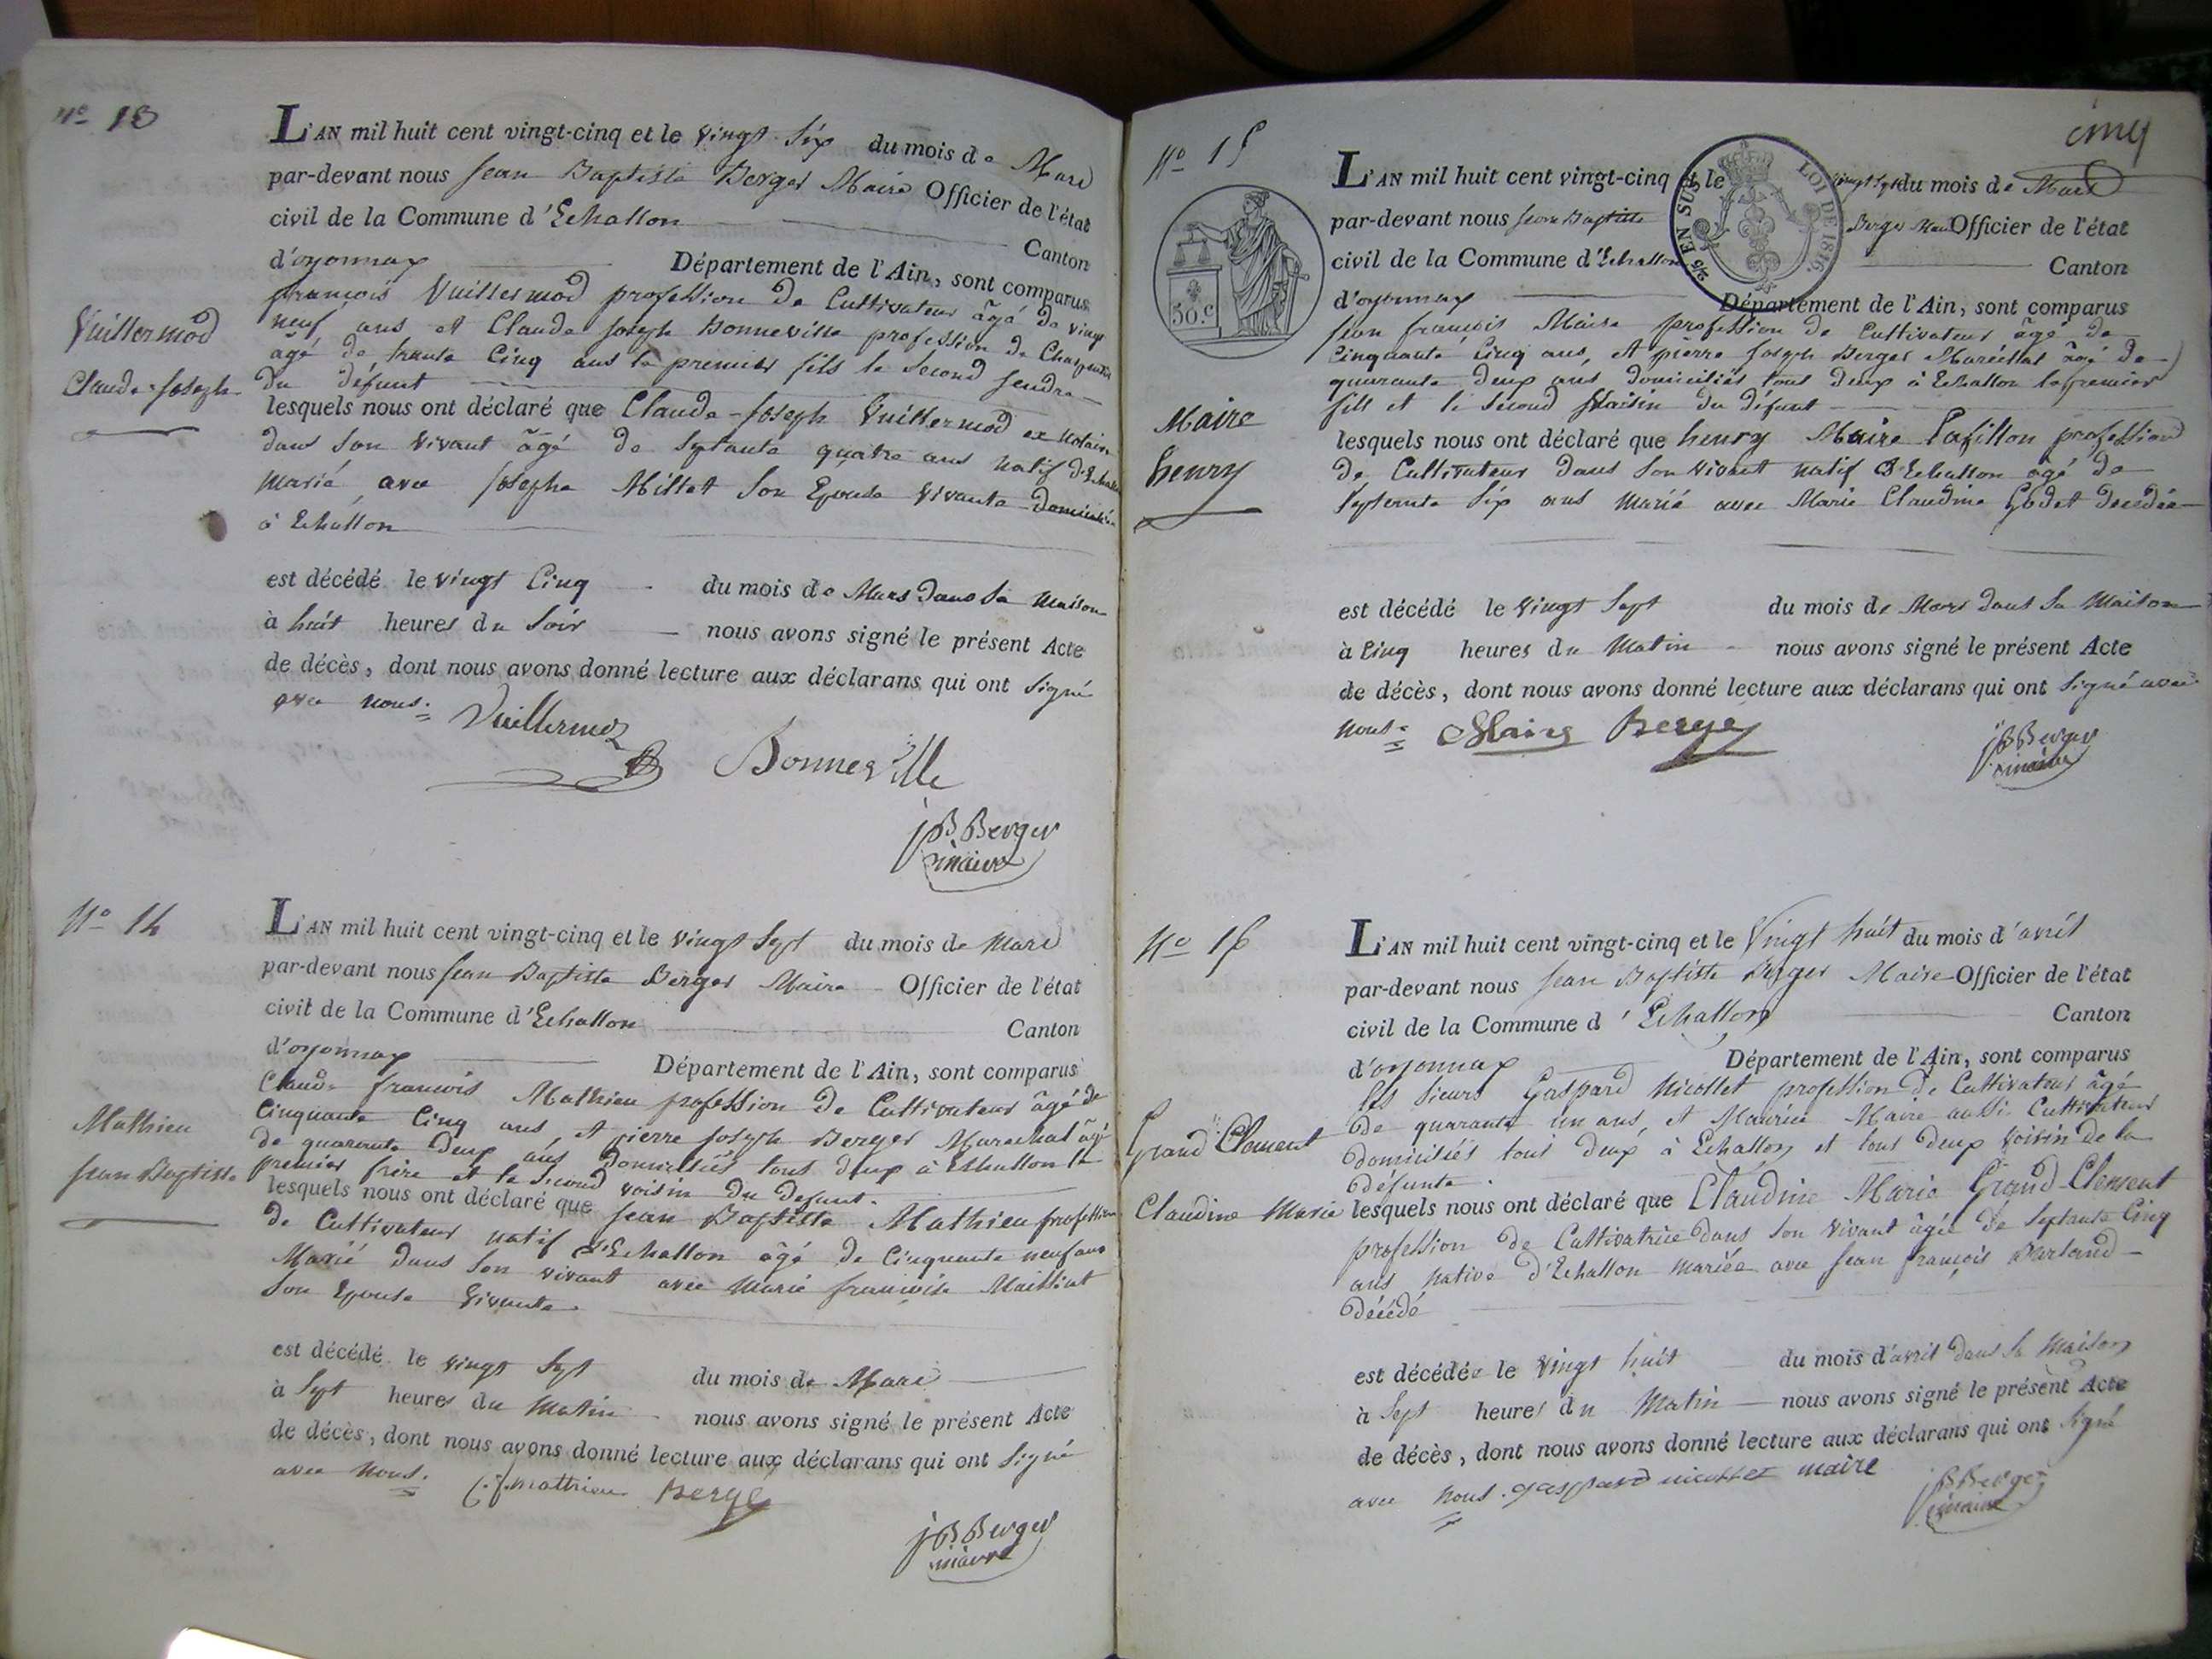 N.º 13
L'AN mil huit cent vingt-cinq et le vingt Six du mois de Mars
par-devant nous Jean Baptiste Berger Maire Officier de l'état
civil de la Commune d'Echallon Canton
d'oyonnax Département de l'Ain, sont comparus
françois Vuillermod profession de Cultivateur âgé de vingt
neuf ans et Claude Joseph Bonneville profession de Charpentier
âgé de trente Cinq ans le premier fils le Second gendre
du défunt
Vuillermod
Claude-Joseph
lesquels nous ont déclaré que Claude-Joseph Vuillermod ex Notaire
dans Son vivant âgé de Septante quatre ans natif d'Echallon
Marié avec Josephe Millet Son Epouse vivante Domicilié
à Echallon
est décédé le vingt Cinq du mois de Mars dans Sa maison
à huit heures du Soir nous avons signé le présent Acte
de décès, dont nous avons donné lecture aux déclarans qui ont Signé
avec nous.
Vuillermoz
Bonneville
jB Berger
maire
N.º 14
L'AN mil huit cent vingt-cinq et le vingt Sept du mois de Mars
par-devant nous Jean Baptiste Berger Maire Officier de l'état
civil de la Commune d'Echallon Canton
d'oyonnax Département de l'Ain, sont comparus
Claude françois Mathieu profession de Cultivateur âgé de
Cinquante Cinq ans et pierre Joseph Berger Marechal âgé
de quarante Deux ans Domiciliés tous deux à Echallon le
premier frère et le Second voisin du defunt.
Mathieu
Jean Baptiste
lesquels nous ont déclaré que Jean Baptiste Mathieu profession
de Cultivateur natif d'Echallon âgé de Cinquante neuf ans
Marié dans Son vivant avec Marie françoise Maillat
Son Epouse vivante.
est décédé le vingt Sept du mois de Mars
à Sept heures du Matin nous avons signé le présent Acte
de décès, dont nous avons donné lecture aux déclarans qui ont Signé
avec nous.
C.f. mathieu
Berger
jB Berger
maire
cinq
N.º 15
50.c
EN SUS
LOI DE 1816.
L'AN mil huit cent vingt-cinq et le vingt Sept du mois de Mars
par-devant nous Jean Baptiste Berger Maire Officier de l'état
civil de la Commune d'Echallon Canton
d'oyonnax Département de l'Ain, sont comparus
Jean françois Maire profession de Cultivateur âgé de
Cinquante Cinq ans, et pierre Joseph Berger Maréchal âgé de
quarante deux ans domiciliés tous deux à Echallon le premier
fils et le Second Voisin du défunt
Maire
henry
lesquels nous ont déclaré que henry Maire Pafillon profession
de Cultivateur dans Son vivant natif d'Echallon âgé de
Septente Six ans marié avec Marie Claudine Godet decedée
est décédé le vingt Sept du mois de Mars dans Sa Maison
à Cinq heures du Matin nous avons signé le présent Acte
de décès, dont nous avons donné lecture aux déclarans qui ont Signé avec
nous.
Maire
Berger
jB Berger
maire
N.º 16
L'AN mil huit cent vingt-cinq et le Vingt huit du mois d'avril
par-devant nous Jean Baptiste Berger Maire Officier de l'état
civil de la Commune d'Echallon Canton
d'oyonnax Département de l'Ain, sont comparus
les Sieurs Gaspard Nicollet profession de Cultivateur âgé
de quarante un ans, et Maurice Maire aussi Cultivateur
domiciliés tous deux à Echallon et tous deux voisin de la
défunte.
Grand Clement
Claudine Marie
lesquels nous ont déclaré que Claudine Marie Grand-Clement
profession de Cultivatrice dans Son vivant âgée de Septante Cinq
ans native d'Echallon mariée avec Jean françois
décédé
est décédée le vingt huit du mois d'avril dans Sa Maison
à Sept heures du Matin nous avons signé le présent Acte
de décès, dont nous avons donné lecture aux déclarans qui ont Signé
avec nous. gaspard nicollet maire
jB Berger
maire